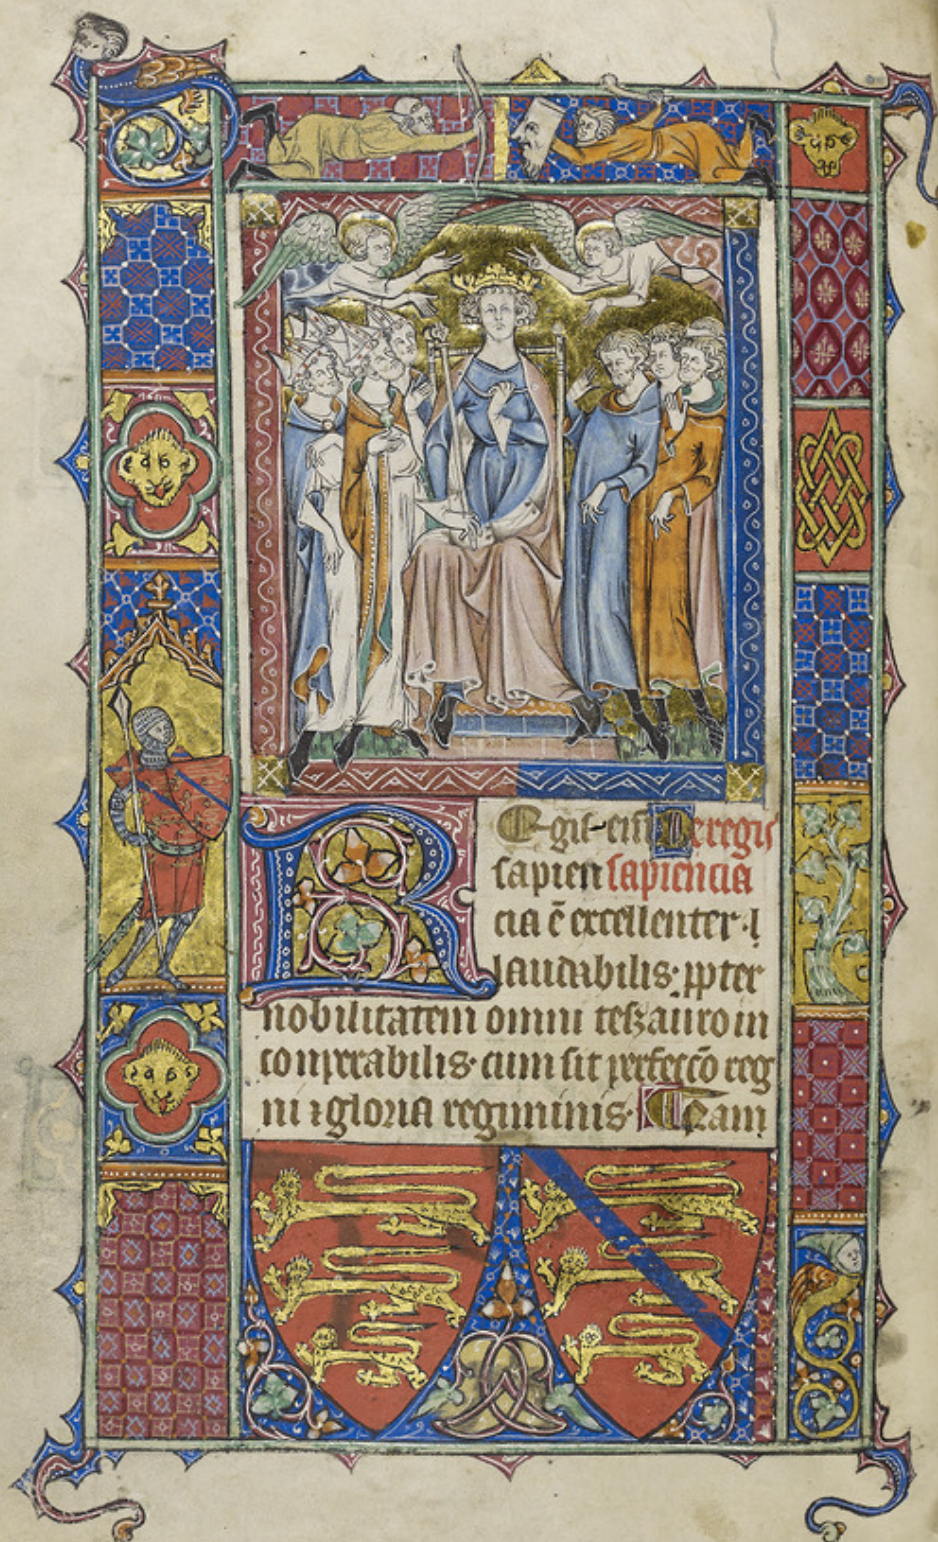 REgis enī De regis
sapien sapiencia
cia ē excellenter · l
laudabilis · ꝓpter
nobilitatem omni teszauro in
conperabilis · cum sit perfeccō reg
ni ⁊ gloria regiminis ·